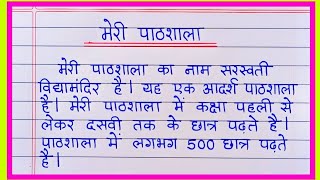 मेरी पाठशाला
मेरी पाठशाला का नाम सरस्वती
विद्यामंदिर है। यह एक आदर्श पाठशाला
है। मेरी पाठशाला में कक्षा पहली से
लेकर दसवी तक के छात्र पढ़ते है।
पाठशाला में लगभग 500 छात्र पढ़ते
है।